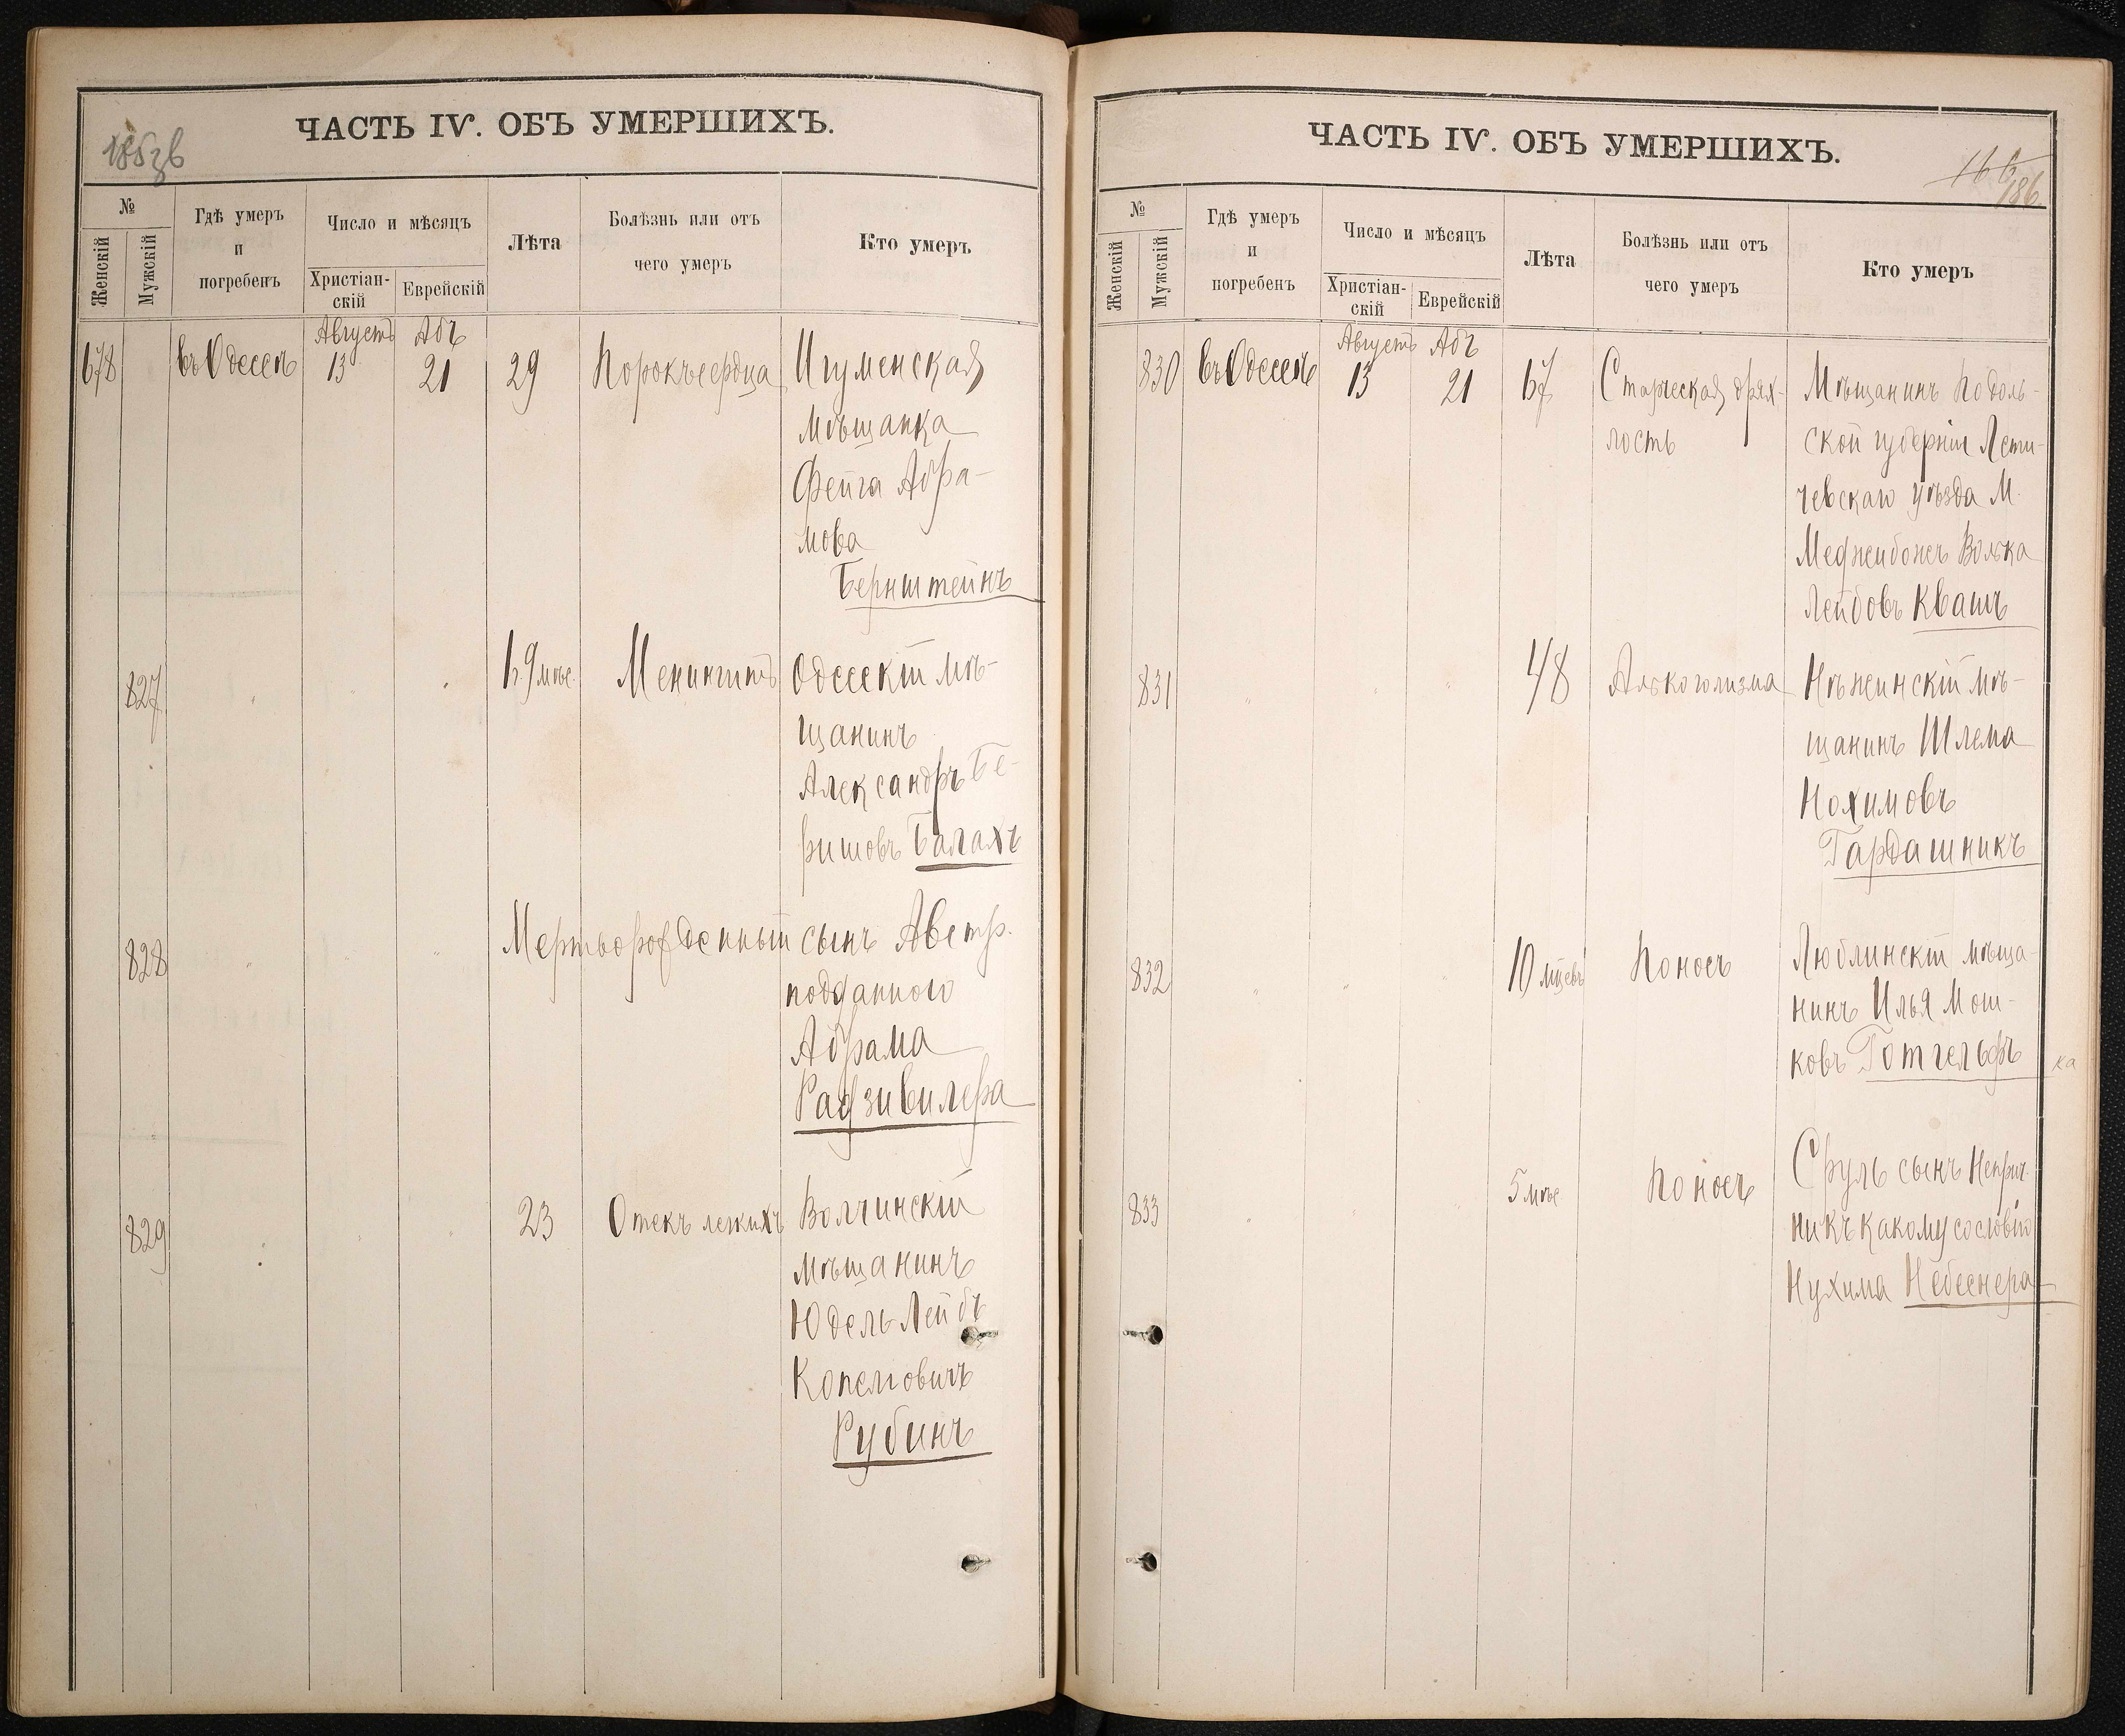 185зв
ЧАСТЬ IV. ОБЪ УМЕРШИХЪ.
№
Женскій
Мужскій
Гдѣ умеръ
и
погребенъ
Число и мѣсяцъ
Христіан-
скій
Еврейскій
Лѣта
Болѣзнь или отъ
чего умеръ
Кто умеръ
Августъ Абъ
678 въ Одессѣ 13 21 29 Порокъ сердца Игуменская
мѣщанка
Фейга Абра-
мова
Бернштейнъ
827 " " " 1 г. 9 мѣс. Менингитъ Одесскій мѣ-
щанинъ
Александръ Бе-
ришовъ Балахъ
828 " " " Мертворожденный сынъ Австр.
подданного
Абрама
Радзивилера
829 " " " 23 Отекъ легкихъ Волчинскій
мѣщанинъ
Юдель-Лейбъ
Копелговичъ
Рубинъ
ЧАСТЬ IV. ОБЪ УМЕРШИХЪ.
166
186
№
Женскій
Мужскій
Гдѣ умеръ
и
погребенъ
Число и мѣсяцъ
Христіан-
скій
Еврейскій
Лѣта
Болѣзнь или отъ
чего умеръ
Кто умеръ
Августъ Абъ
830 въ Одессѣ 13 21 67 Старческая дрях- Мѣщанинъ Подоль-
лость ской губерніи Лети-
чевскаго уѣзда М.
Меджибожъ Волька
Лейбовъ Квашъ
831 " " " 48 Алькоголизма Нѣжинскій мѣ-
щанинъ Шлема
Нохимовъ
Гардашникъ
832 " " " 10 мцевъ Поносъ Люблинскій мѣща-
нинъ Илья Мош-
ковъ Готгельфъ
ка
833 " " " 5 мѣс Поносъ Сруль сынъ Неприч.
ни къ какому сословію
Нухима Небеснера